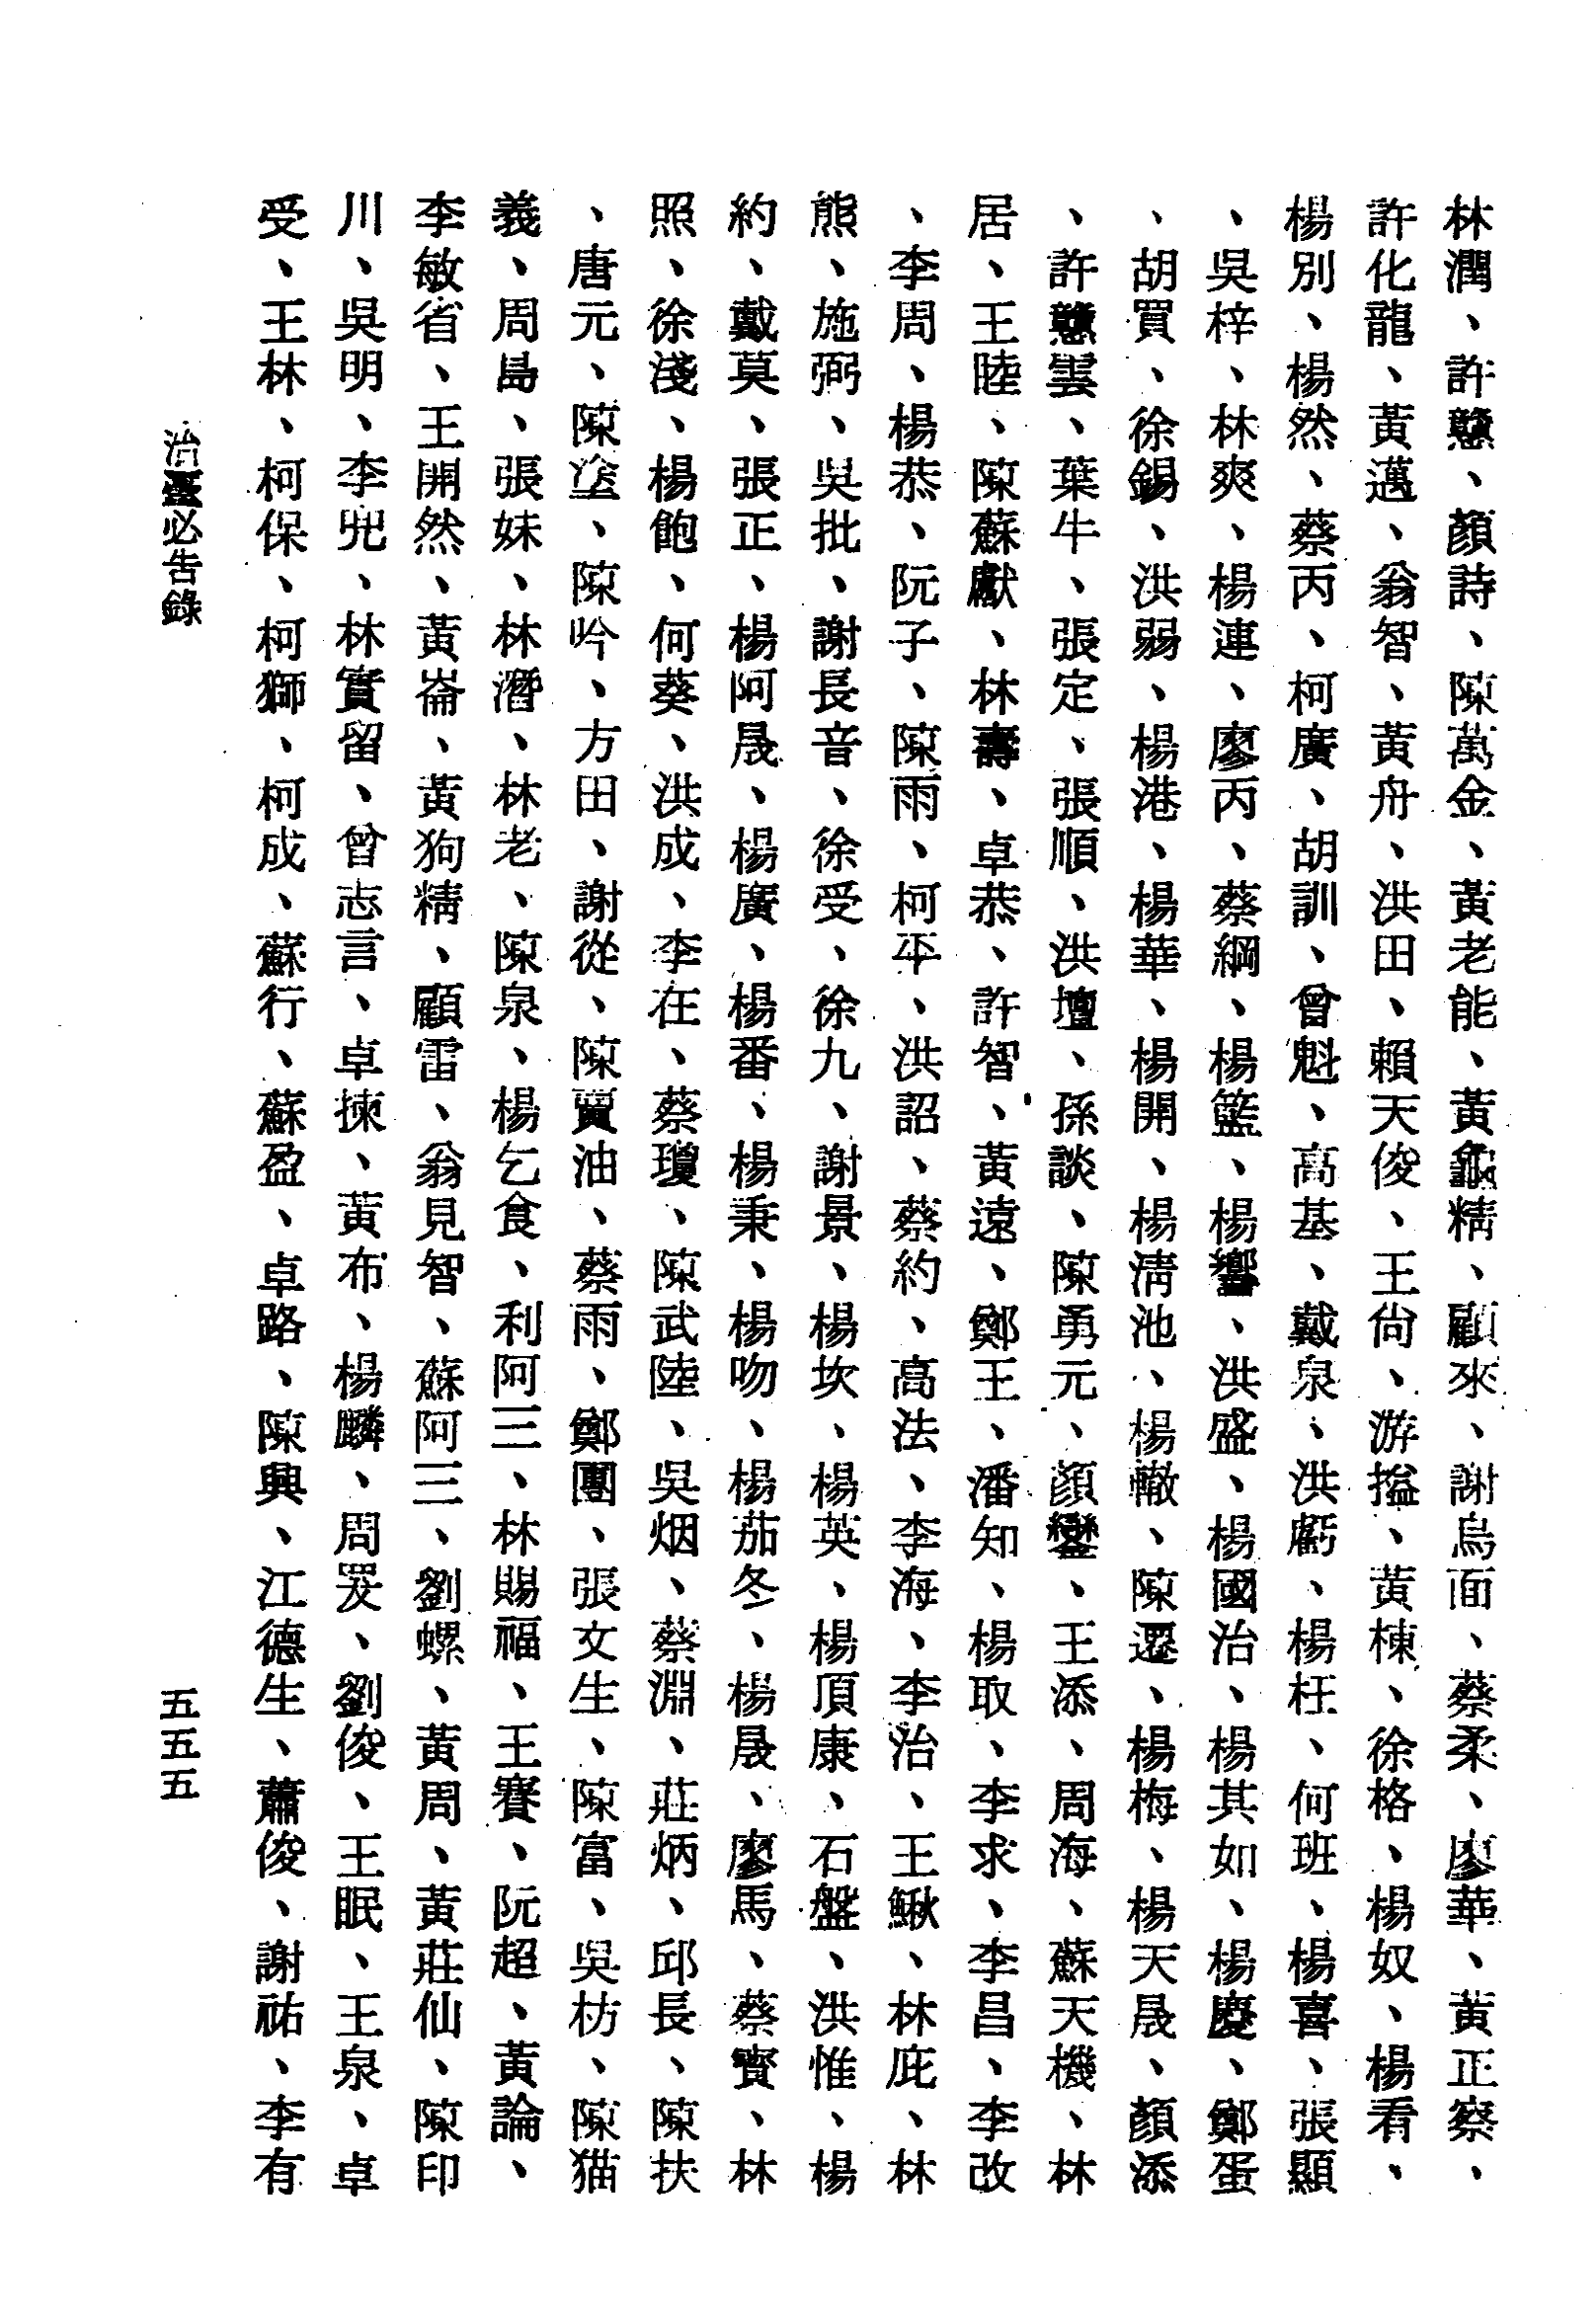 林潤、許戇、顏詩、陳萬金、黃老能、黃龜精、顧來、謝烏面、蔡柔、廖華、黃正察、
許化龍、黃邁、翁智、黃舟、洪田、賴天俊、王尙、游搤、黃棟、徐格、楊奴、楊看、
楊別、楊然、蔡丙、柯廣、胡訓、曾魁、高基、戴泉、洪虧、楊枉、何班、楊喜、張顯
、吳梓、林爽、楊連、廖丙、蔡綱、楊籃、楊響、洪盛、楊國治、楊其如、楊慶、鄭蛋
、胡買、徐錫、洪弱、楊港、楊華、楊開、楊淸池、楊轍、陳遝、楊梅、楊天晟、顏添
、許戇雲、葉牛、張定、張順、洪壇、孫談、陳勇元、顏、王添、周海、蘇天機、林
居、王陸、陳蘇獻、林壽、卓恭、許智、黃遠、鄭王、潘知、楊取、李求、李昌、李改
、李周、楊恭、阮子、陳雨、柯平、洪詔、蔡約、高法、李海、李治、王鰍、林庇、林
熊、施弼、吳批、謝長音、徐受、徐九、謝景、楊坎、楊英、楊頂康、石盤、洪惟、楊
約、戴莫、張正、楊阿晟、楊廣、楊番、楊秉、楊吻、楊茄冬、楊晟、廖馬、蔡賓、林
照、徐淺、楊飽、何葵、洪成、李在、蔡瓊、陳武陸、吳烟、蔡淵、莊炳、邱長、陳扶
、唐元、陳塗、陳吟、方田、謝從、陳賣油、蔡雨、鄭團、張文生、陳富、吳枋、陳猫
義、周島、張妹、林潛、林老、陳泉、楊乞食、利阿三、林賜福、王賽、阮超、黃論、
李敏省、王開然、黃崙、黃狗精、顧雷、翁見智、蘇阿三、劉螺、黃周、黃莊仙、陳印
川、吳明、李兜、林實留、曾志言、卓揀、黃布、楊麟、周、劉俊、王眠、王泉、卓
受、王林、柯保、柯獅、柯成、蘇行、蘇盈、卓路、陳興、江德生、蕭俊、謝祐、李有
治臺必告錄
五五五